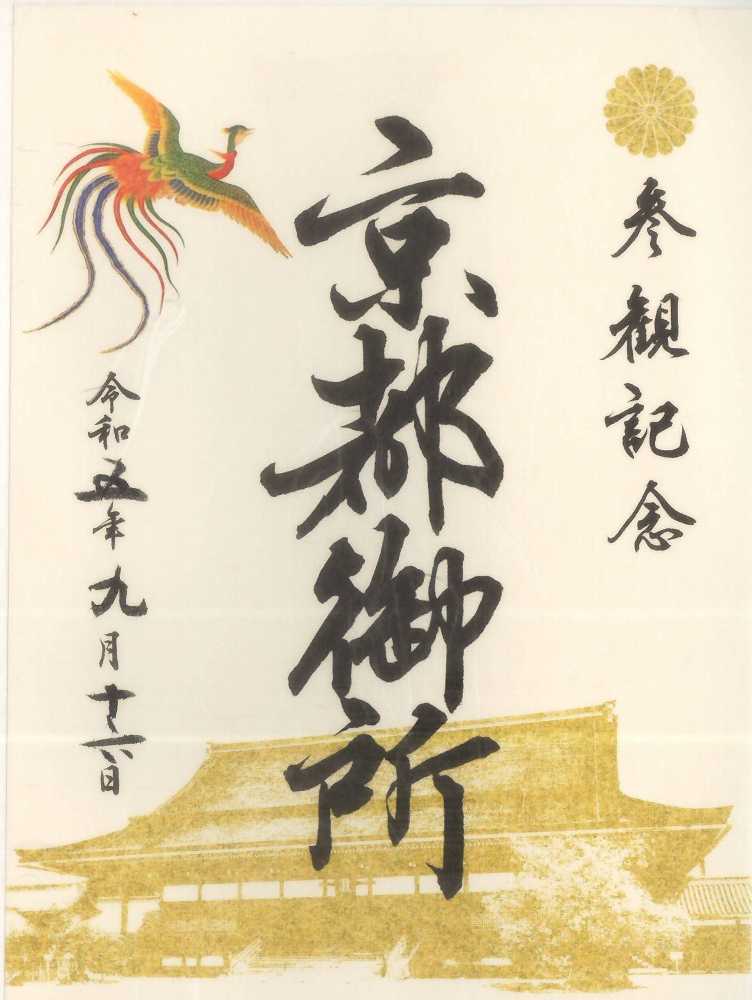 参観記念
京都御所
令和五年九月十六日